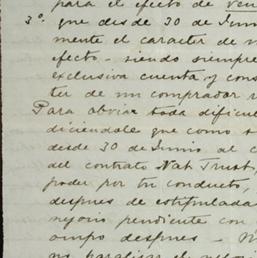 para el efecto de ven
3º. que desde 30 de Juni
mente el caracter de
efecto - siendo siempre
exclusiva cuenta y cons
ter de un comprador
Para obviar toda dificul
diciéndole que como
desde 30 Junio al
del contrato Nat Trust,
poder por tu conducto,
despues de estipulada
negocio pendiente con
ampo despues -
no paralizar el nego